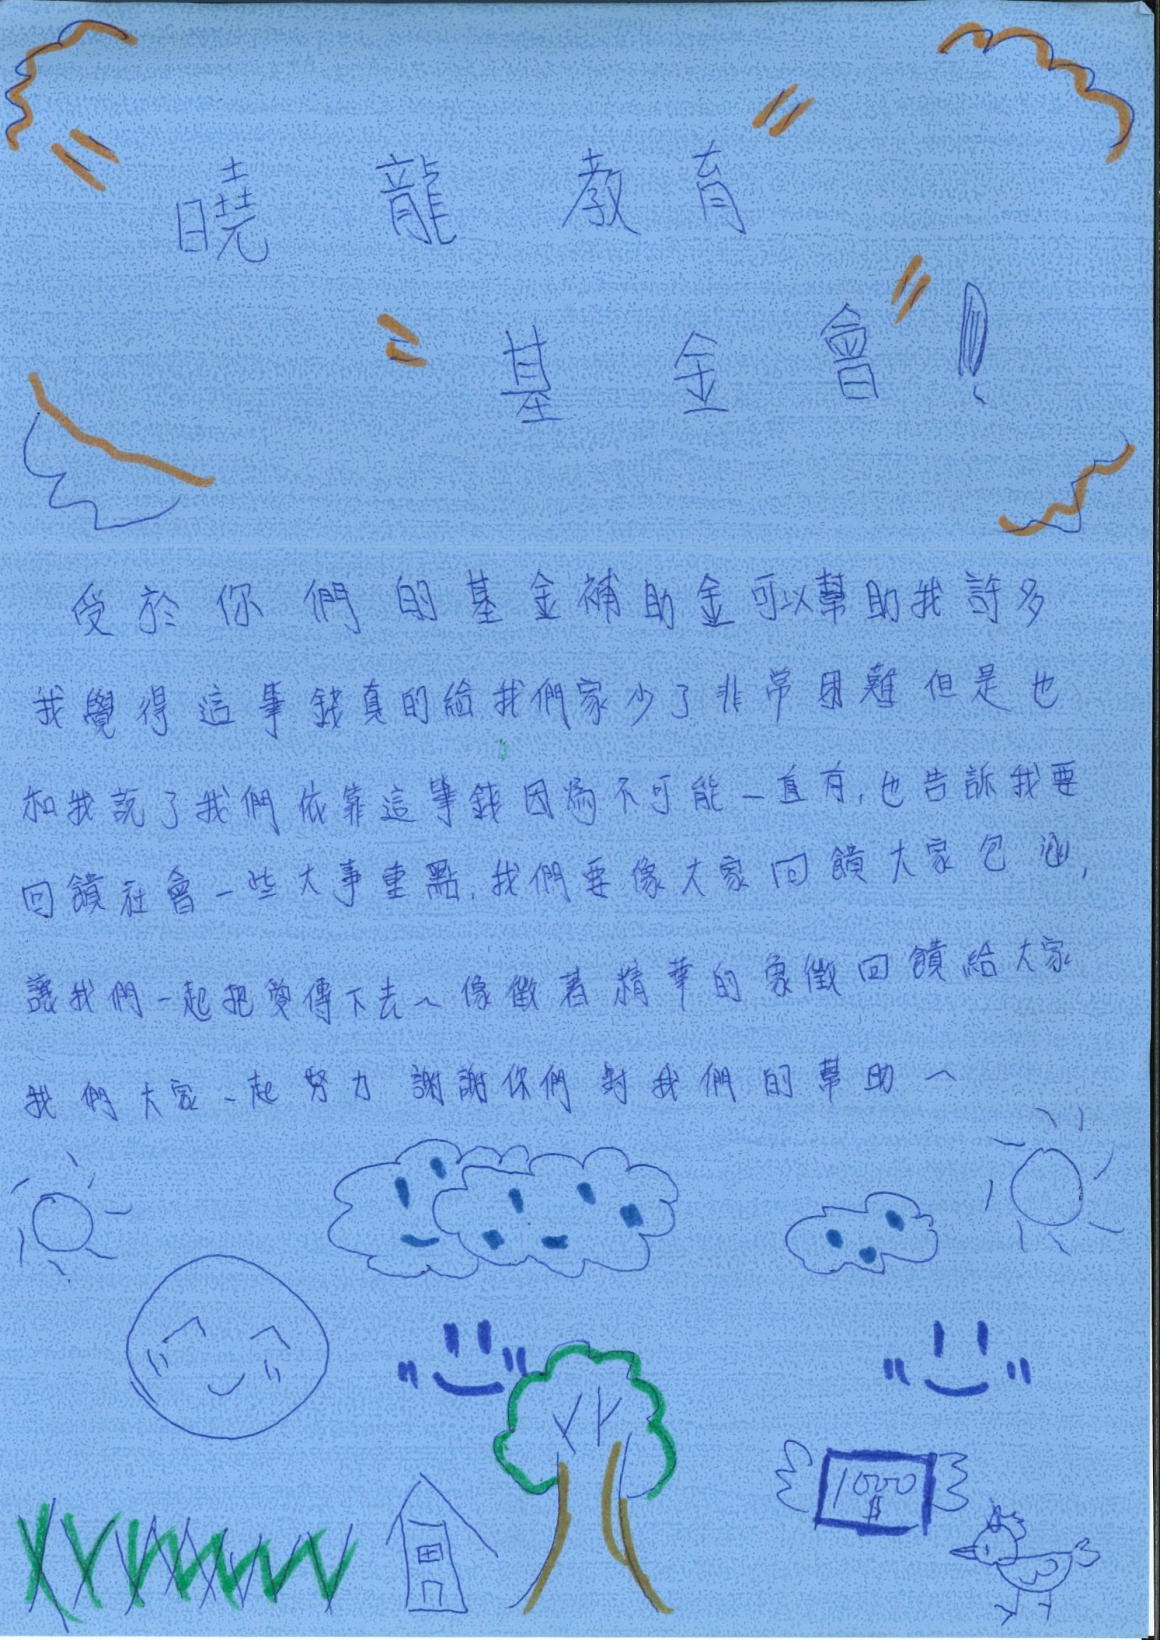 曉龍教育
基金會!
受於你們的基金補助金可以幫助我許多
我覺得這筆錢真的給我們家少了非常困難但是也
和我說了我們依靠這筆錢因為不可能一直有,也告訴我要
回饋社會一些大事重點,我們要像大家回饋大家包涵,
讓我們一起把愛傳下去~像徵著精華的象徵回饋給大家
我們大家一起努力 謝謝你們對我們的幫助~
1000
$